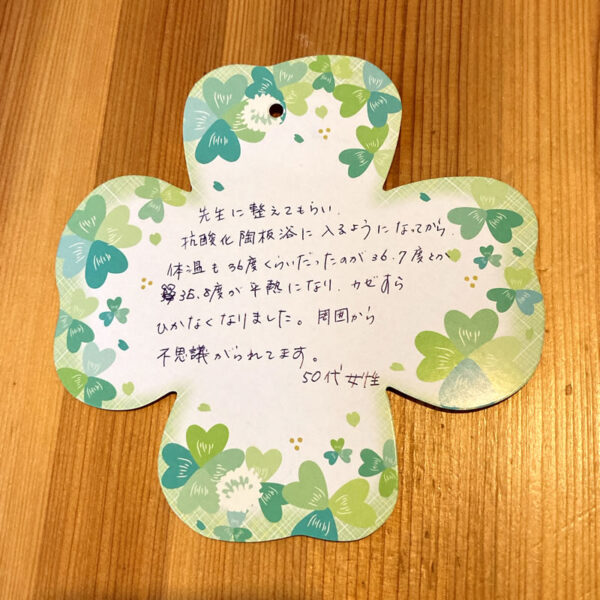 先生に整えてもらい、
抗酸化陶板浴に入るようになってから、
体温も36度くらいだったのが36.7度とか
35.8度が平熱になり、カゼすら
ひかなくなりました。周囲から
不思議がられてます。
50代女性